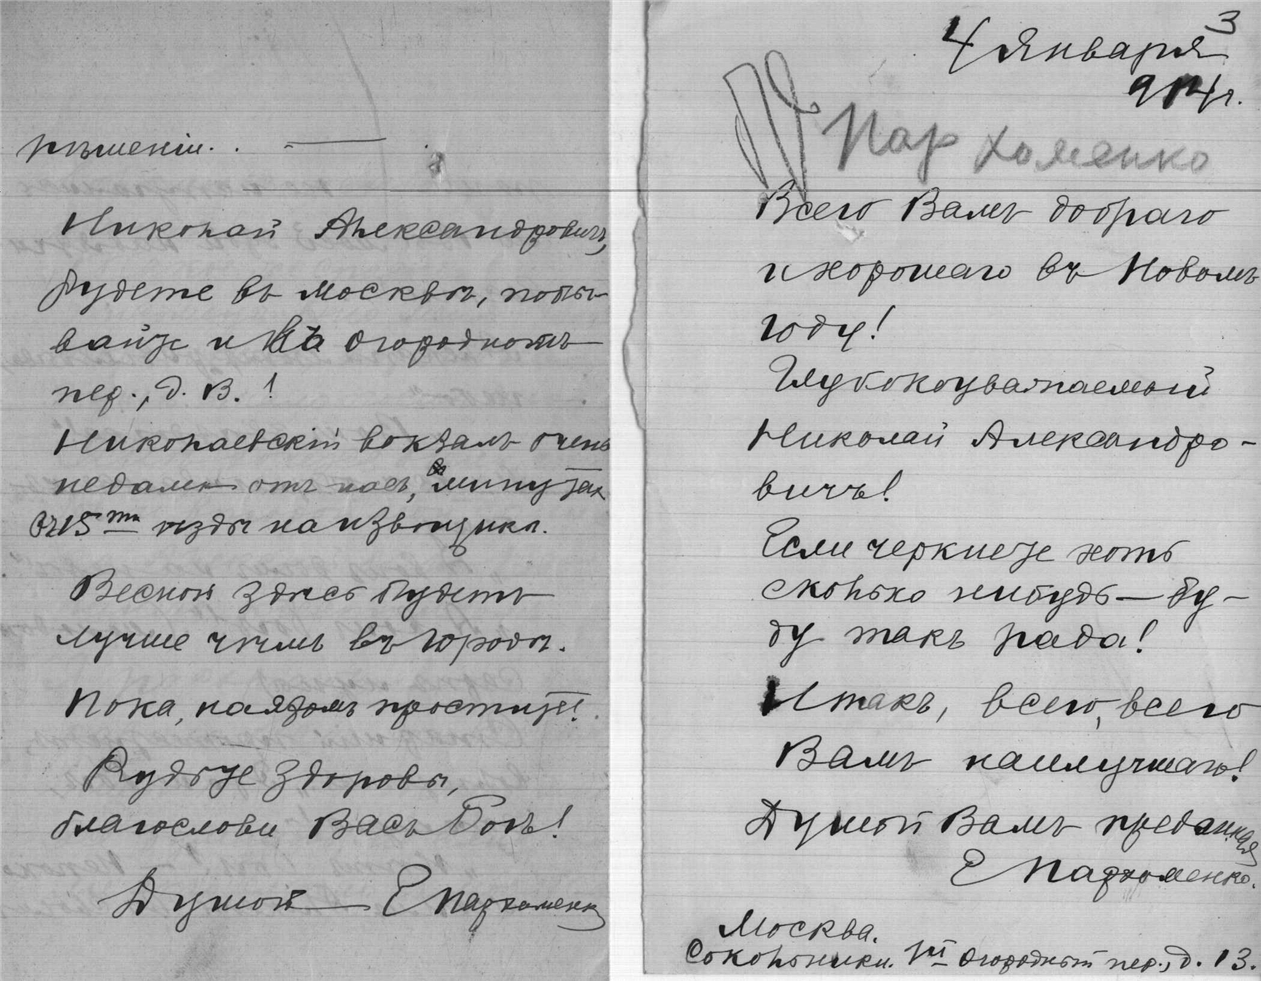 рѣшеніи. . —
Николай Александровичъ,
будете въ Москвѣ, побы-
вайте и въ Огородномъ
пер., д. В. !
Николаевскій вокзалъ очень
недалек отъ насъ, минутах
въ 15ти ѣзды на извощикѣ.
Весной здѣсь будетъ
лучше чѣмъ въ городѣ.
Пока, простите!
Будьте здоровы,
благослови Васъ Богъ!
Душой — Е Пархоменко
3
4 Января
914 г.
Пархоменко
Всего Вамъ добраго
и хорошаго въ Новомъ
году!
Глубокоуважаемый
Николай Александро-
вичъ!
Если черкнете хоть
сколько нибудь — бу-
ду такъ рада!
Итакъ, всего, всего
Вамъ наилучшаго!
Душой Вамъ преданная
Е Пархоменко.
Москва.
Сокольники. Огородный пер., д. 13.